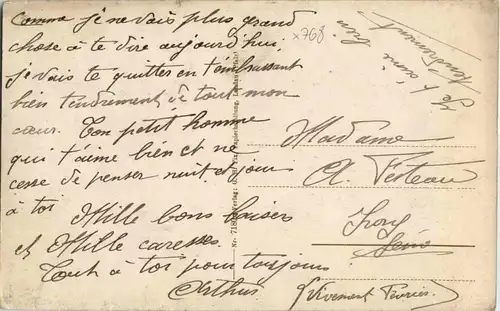 Comme je ne vais plus grand
chose à te dire aujourd'hui,
je vais te quitter en t'embrassant
bien tendrement de tout mon
cœur. Ton petit homme
qui t'aime bien et ne
cesse de penser nuit et jour
à toi Mille bons baisers
et Mille caresses.
Tout à toi pour toujours
Arthur
x768
Je t'aime bien
tendrement
Madame
A.
(Vivement Février.)